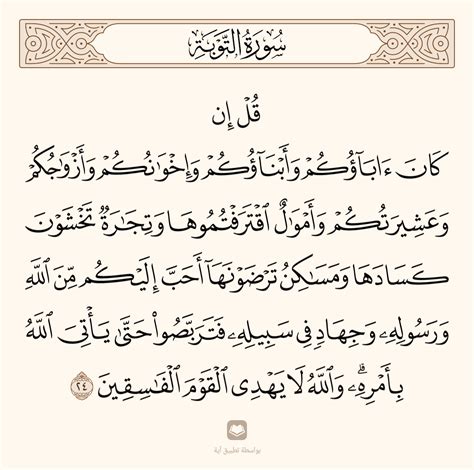 سُورَةُ التَّوْبَةِ
قُلْ إِن
كَانَ ءَابَآؤُكُمْ وَأَبْنَآؤُكُمْ وَإِخْوَٰنُكُمْ وَأَزْوَٰجُكُمْ
وَعَشِيرَتُكُمْ وَأَمْوَٰلٌ ٱقْتَرَفْتُمُوهَا وَتِجَٰرَةٌ تَخْشَوْنَ
كَسَادَهَا وَمَسَٰكِنُ تَرْضَوْنَهَآ أَحَبَّ إِلَيْكُم مِّنَ ٱللَّهِ
وَرَسُولِهِۦ وَجِهَادٍ فِي سَبِيلِهِۦ فَتَرَبَّصُوا۟ حَتَّىٰ يَأْتِىَ ٱللَّهُ
بِأَمْرِهِۦۗ وَٱللَّهُ لَا يَهْدِى ٱلْقَوْمَ ٱلْفَٰسِقِينَ ٢٤
بواسطة تطبيق آية